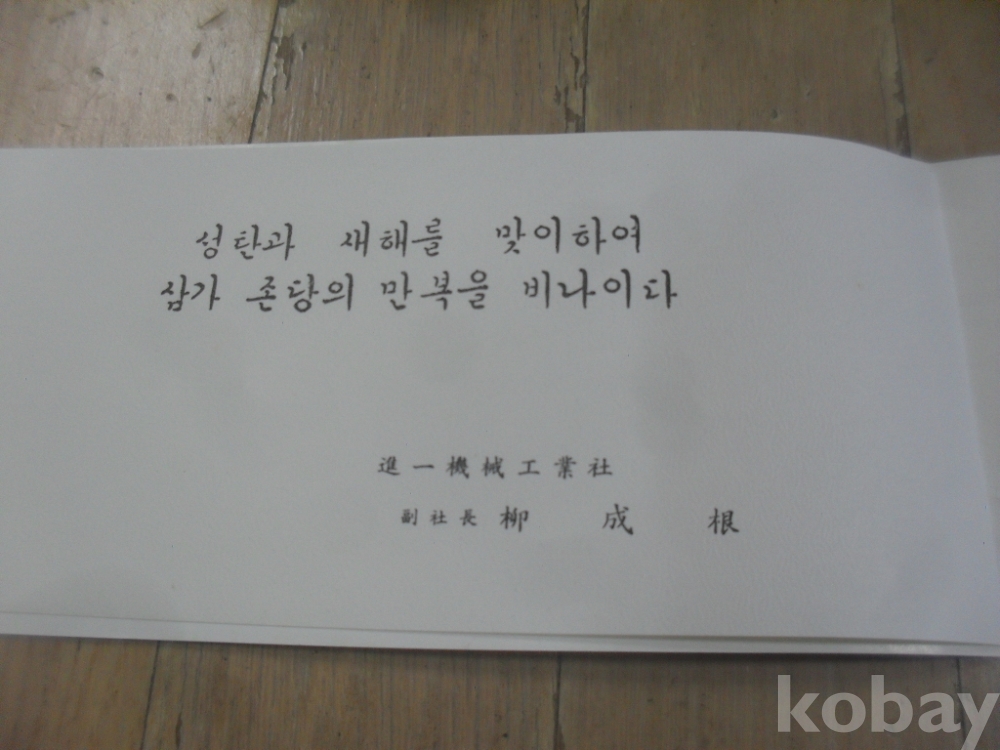 성탄과 새해를 맞이하여
삼가 존당의 만복을 비나이다
進一機械工業社
副社長 柳 成 根
kobay